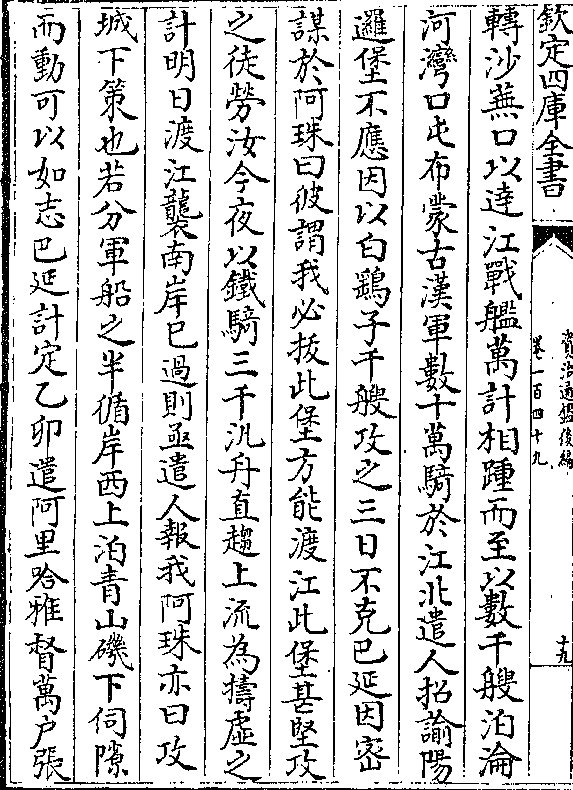 欽定四庫全書
資治通鑑後編
卷一百四十九
十九
轉沙蕪口以逹江戰艦萬計相踵而至以數千艘泊淪
河灣口屯布蒙古漢軍數十萬騎於江北遣人招諭陽
邏堡不應因以白鷂子千艘攻之三日不克巴延因密
謀於阿珠曰彼謂我必拔此堡方能渡江此堡甚堅攻
之徒勞汝今夜以鐵騎三千汎舟直趨上流為擣虛之
計明日渡江襲南岸已過則亟遣人報我阿珠亦曰攻
城下策也若分軍船之半循岸西上泊青山磯下伺隙
而動可以如志巴延計定乙卯遣阿里哈雅督萬户張